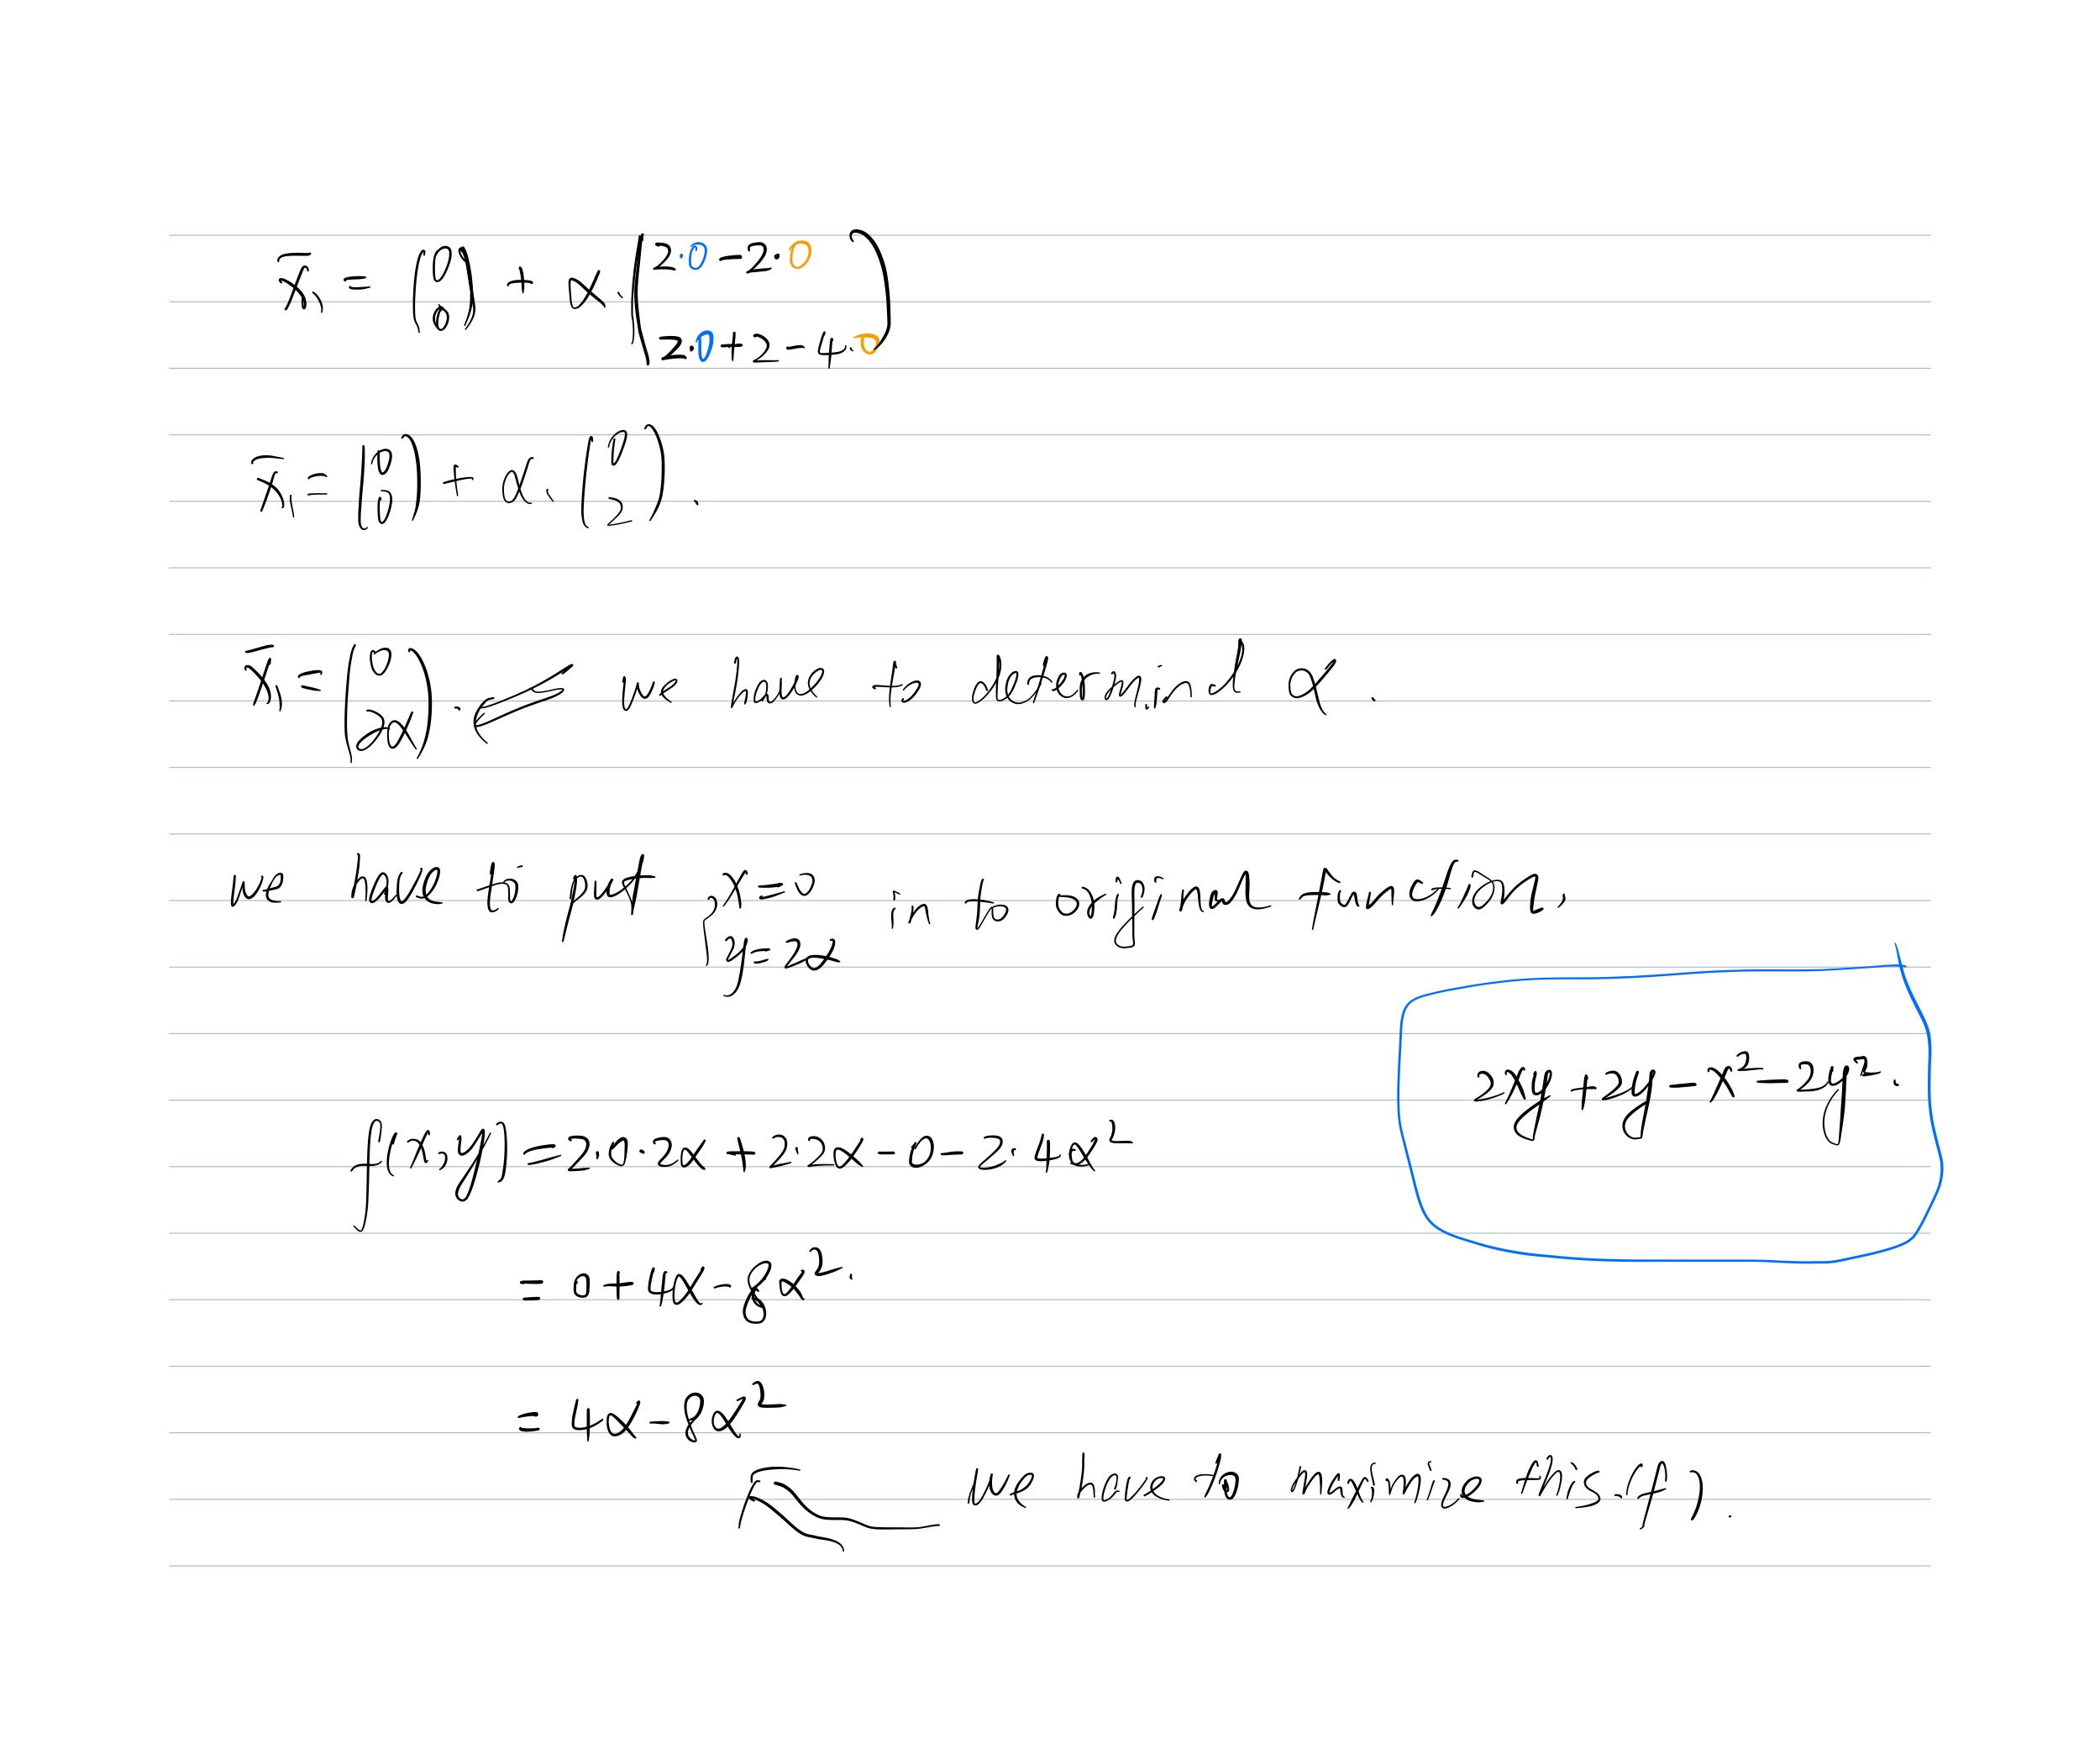 x̄₁ = (0 0) + α·(2·0 − 2·0
2·0 + 2 − 4·0)
x̄₁ = (0 0) + α·(0 2).
x̄₁ = (0 2α). ⇐ we have to determind α.
we have to put {x=0 y=2α in to original function,
2xy + 2y − x² − 2y².
f(x,y) = 2·0·2α + 2·2α − 0 − 2·4α²
= 0 + 4α − 8α².
= 4α − 8α²
we have to maximize this f).